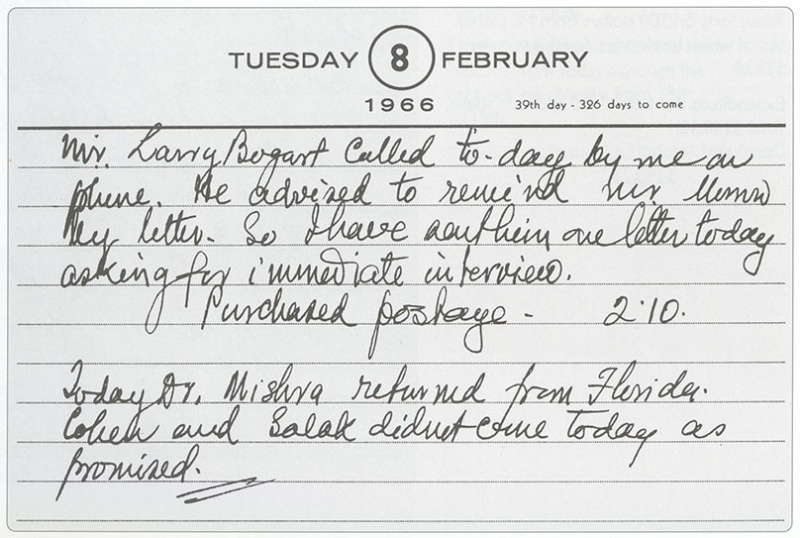 TUESDAY 8 FEBRUARY
1966 39th day - 326 days to come
Mr. Larry Bogart called to-day by me on
phone. He advised to remind Mr.
by letter. So I have sent him one letter today
asking for immediate interview.
Purchased postage - 2.10.
Today Dr. Mishra returned from Florida.
Cohen and didnt come today as
promised.